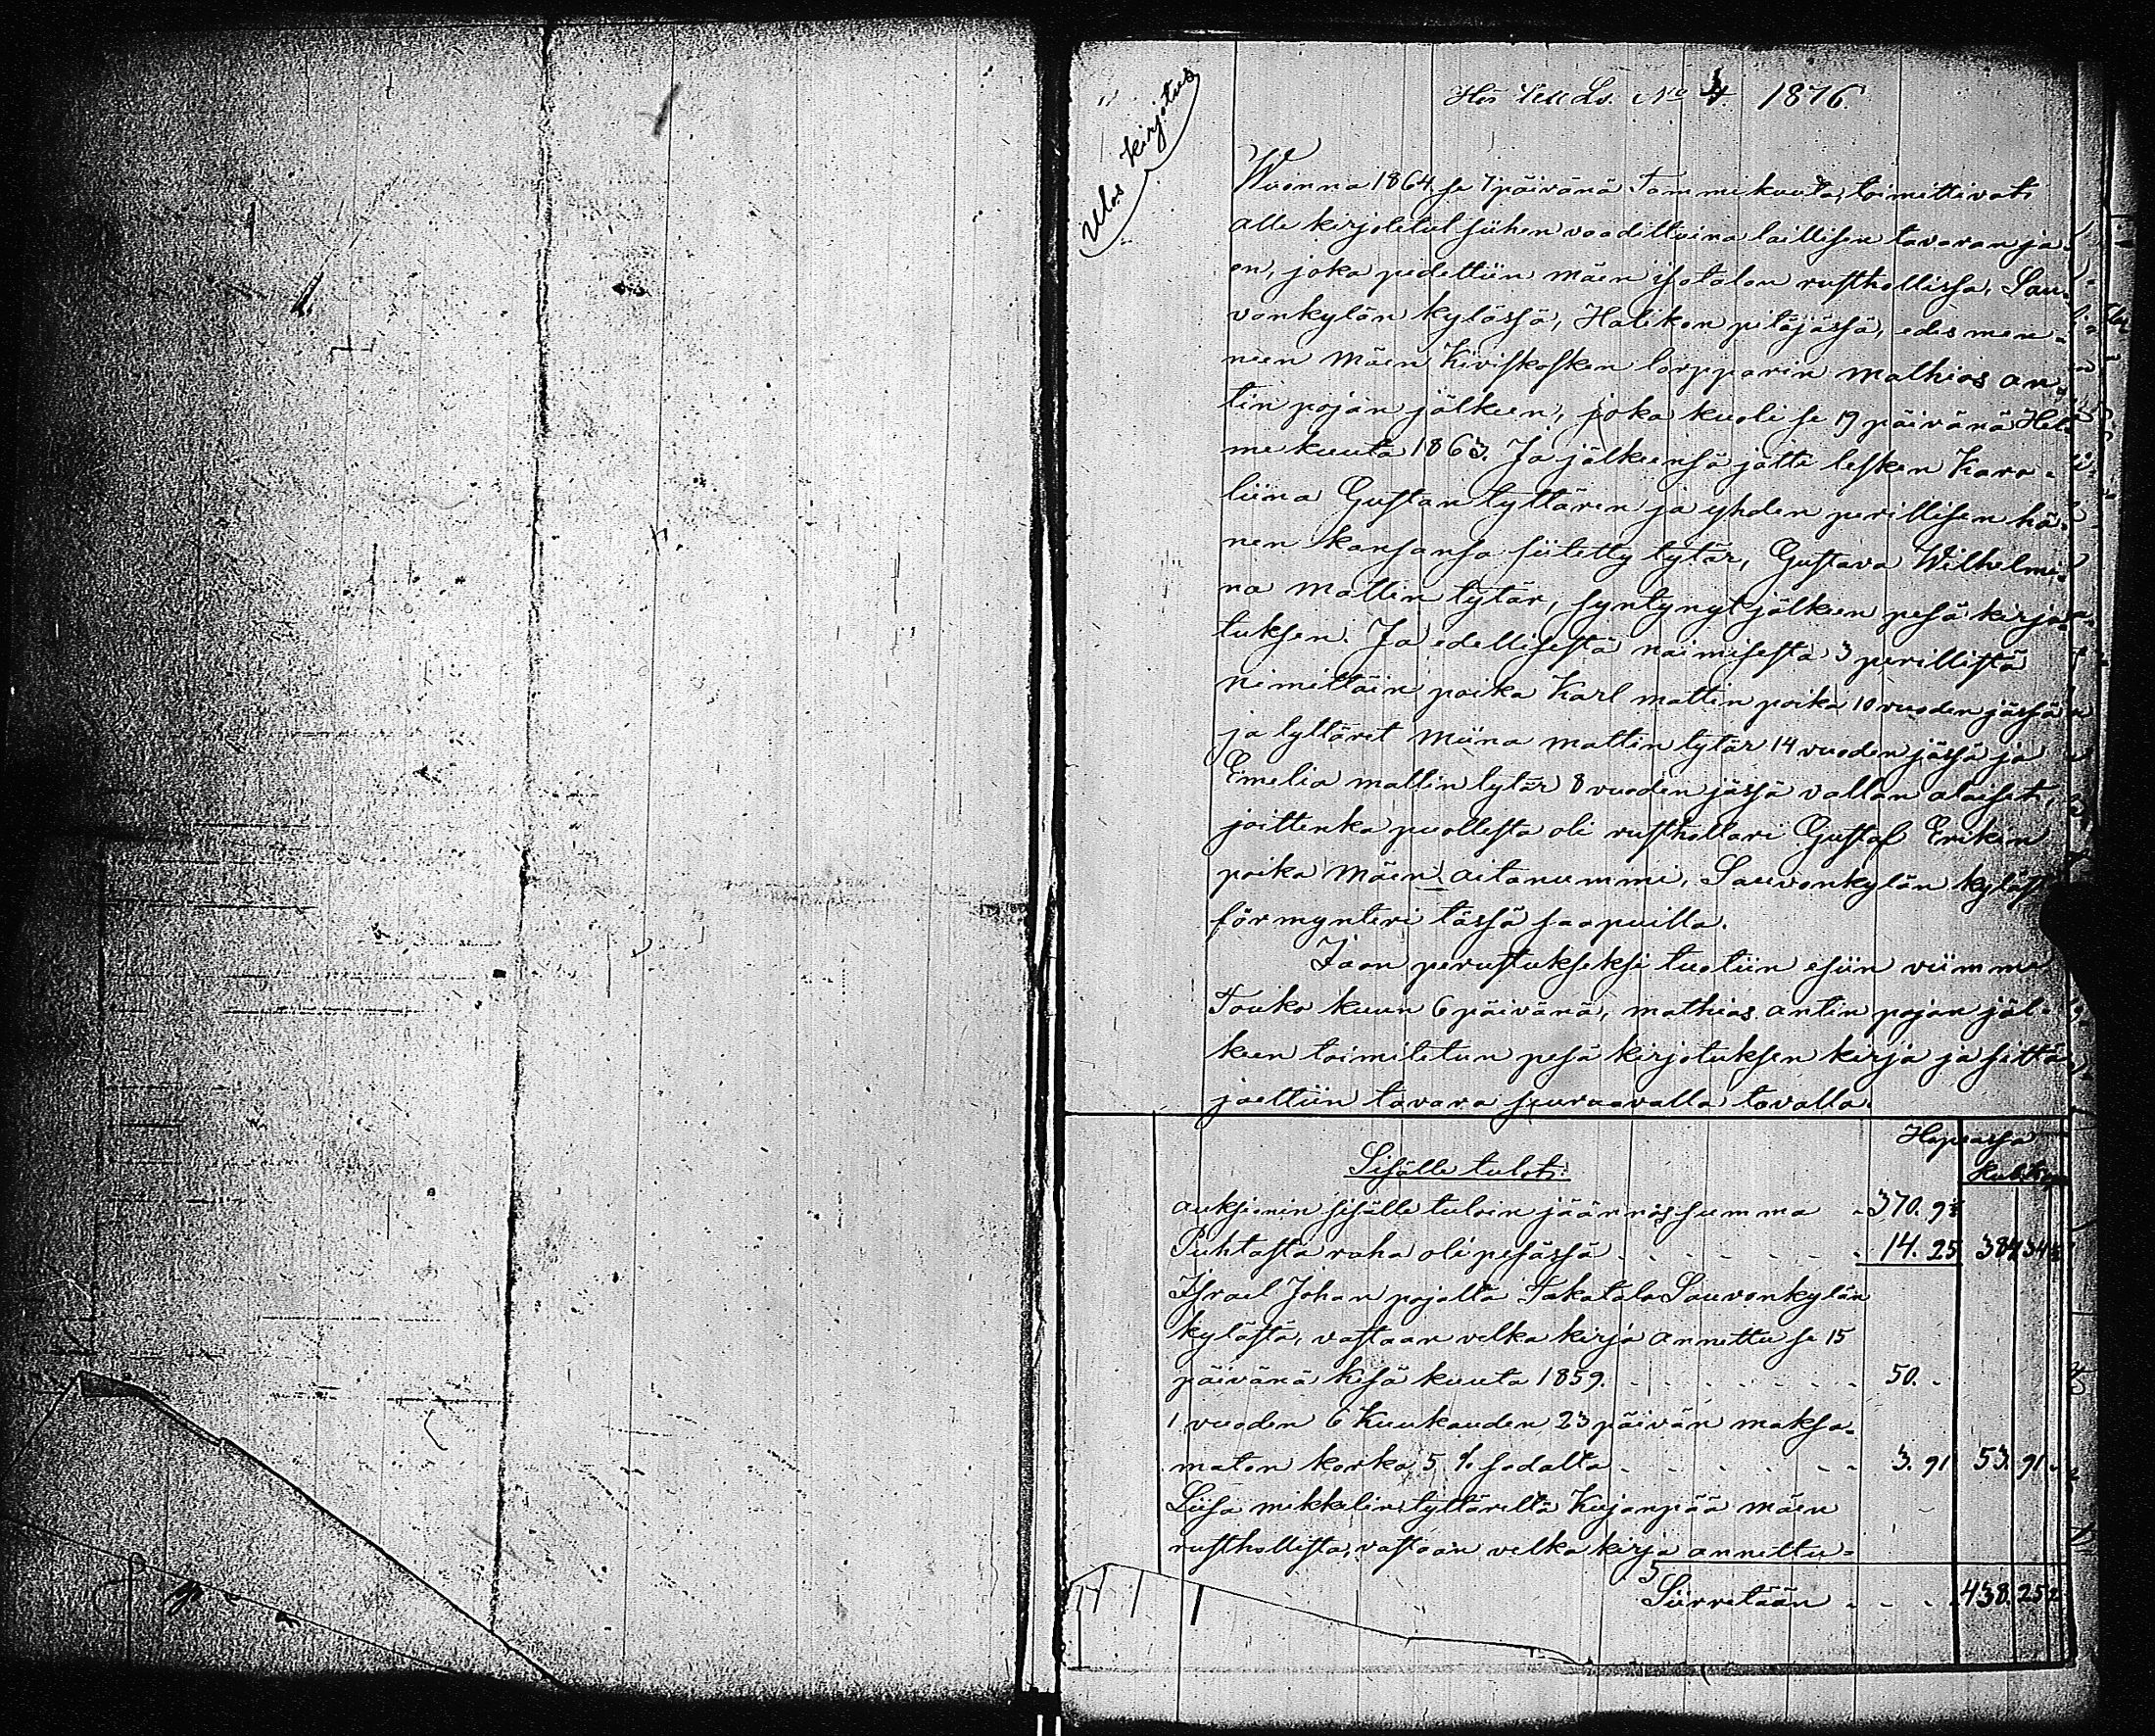 Ulos kirjotus
No 4. 1876.
Wuonna 1864 se 7 päivänä Tammikuuta, toimittivat
alle kirjoitetut siihen vaadittuina laillisen tavaran ja-
on, joka pidettiin mäen isotalon rusthollissa, Sau-
vonkylän kylässä, Halikon pitäjässä, edes men-
neen mäen Kiviskosken torpparin mathias an-
tin pojan jälkeen, joka kuoli se 19 päivänä Hel-
mekuuta 1863. Ja jälkeensä jätti lesken Karo-
liina Gustan tyttären ja yhden perillisen hä-
nen kansansa siitetty tytär, Gustava Wilhelmi-
na mattin tytär, syntynyt jälkeen pesä kirjo-
tuksen. Ja edellisestä naimisesta 3 perillistä
nimittäin poika Karl mattin poika 10 vuoden jässä
ja tyttäret miina mattin tytär 14 vuoden jässä ja
Emelia mattin tytär 8 vuoden jässä vallan alaiset,
joittenka puollesta oli rusthollari Gustaf Erikin
poika mäen aitanummi, Sauvonkylän kylästä
förmynteri tässä saapuilla.
Jaon perustukseksi tuotiin esiin viimme
Touko kuun 6 päivänä, mathias antin pojan jäl-
keen toimitetun pesä kirjotuksen kirja ja sittä
jaettiin tavara seuraavalla tavalla.
Hopeassa
Sisälle tulot. Rub. Kop
auksionin sisälle tuloin jäännös summa 370. 9½
Puhtasta raha oli pesässä 14. 25 384 34½
Israel Johan pojalta Takatalo Sauvonkylän
kylästä, vastaan velka kirja annettu se 15
päivänä kesä kuuta 1859. 50. -
1 vuoden 6 Kuukauden 23 päivän maksa-
maton korko 5 % sadalta 3. 91 53. 91 -
Liisa mikkelin tyttäreltä Kujanpää mäen
rusthollista, vastaan velka kirja annettu-
Siirretään 438. 25½